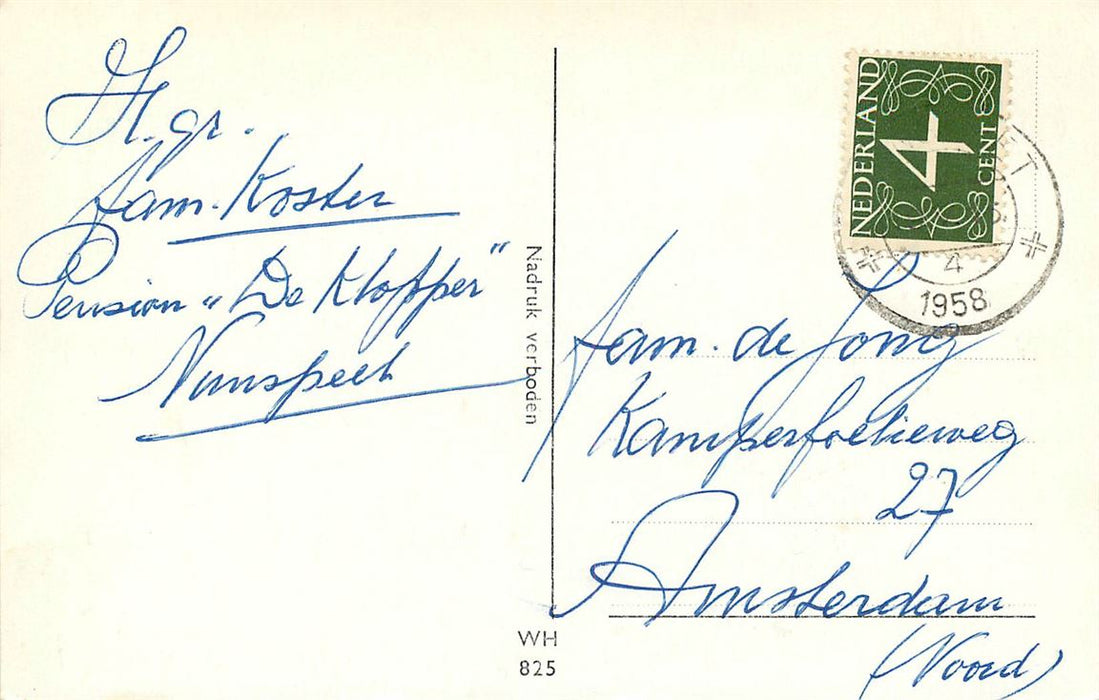 H. gr.
fam. Koster
Pension „De Klopper"
Nunspeet
Nadruk verboden
WH
825
NEDERLAND
4
CENT
ET
4
1958
fam. de Jong
Kamperfoelieweg
27
Amsterdam
(Noord)